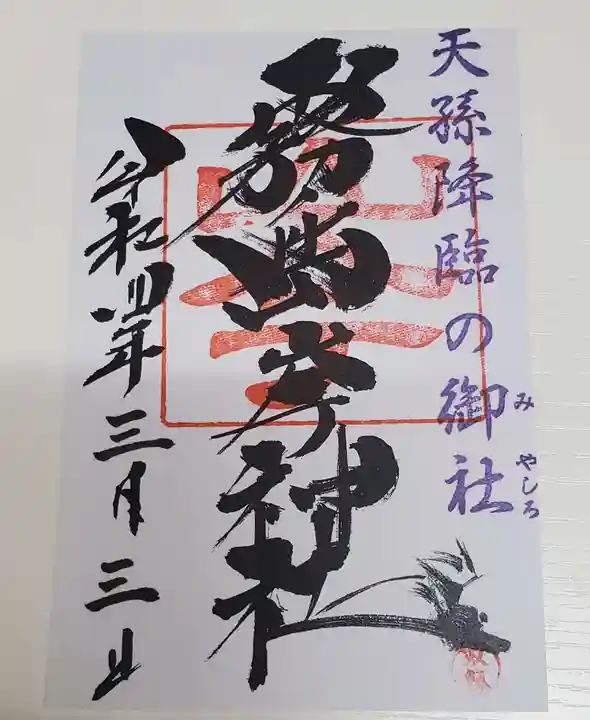 天孫降臨の御社
みやしろ
霧島岑神社
令和四年三月三日